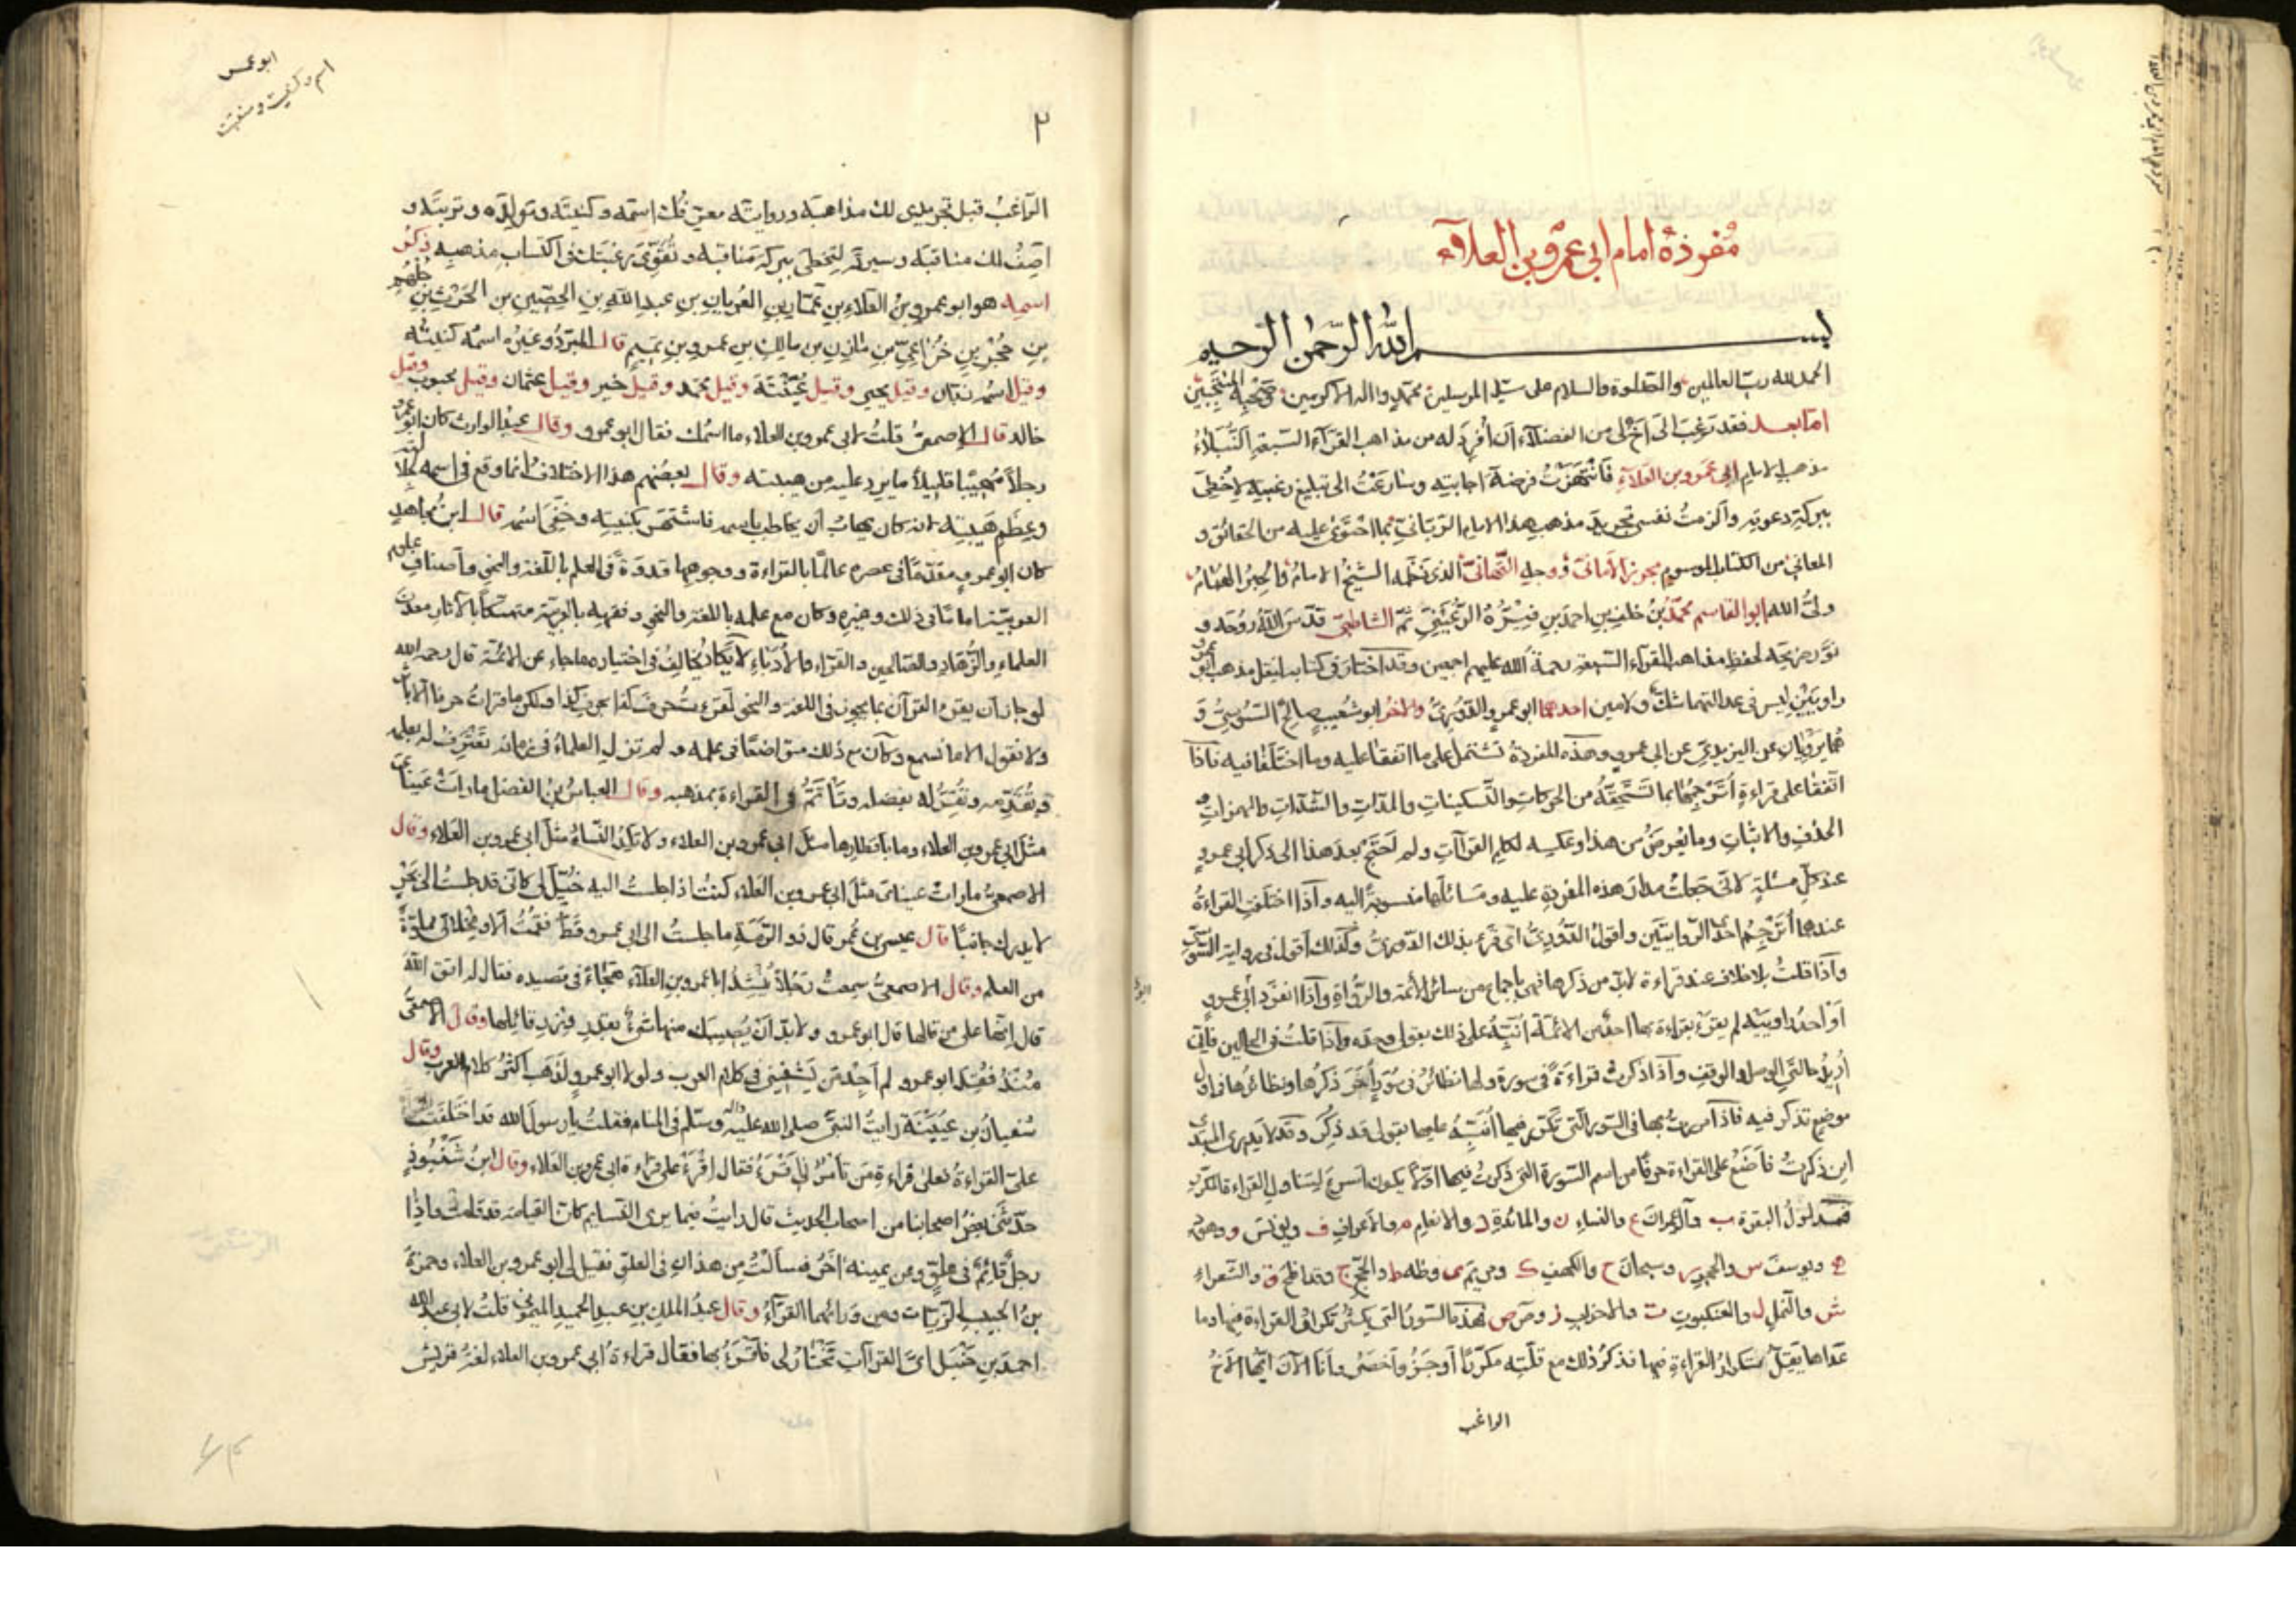 مفردة امام ابي عمرو بن العلاء
بسم الله الرحمن الرحيم
الحمد لله رب العالمين والصلوة والسلام على سيد المرسلين محمد واله الاكرمين وصحبه المنتجبين
اما بعد فقد رغب الى اخ لى من الفضلاء ان افرد له من مذاهب القراء السبعة النبلاء
مذهب الامام ابى عمرو بن العلاء فانتهزت فرصة اجابته وسارعت الى تبليغ رغبته لاحظى
ببركة دعوته والزمت نفسى تجريد مذهب هذا الامام الربانى بما احتوى عليه من الحقائق و
المعانى من الكتاب الموسوم بحرز الامانى ووجه التهانى الذى نظمه الشيخ الامام والحبر الهمام
ولى الله ابو القاسم محمد بن خلف بن احمد بن فيره الرعينى ثم الشاطبى قدس الله روحه و
نور ضريحه لحفظ مذاهب القراء السبعة رحمة الله عليهم اجمعين وقد اختار فى كتابه لنقل مذهب ابى عمرو
راويين ليس فى عدالتهما شك ولا مين احدهما ابو عمرو الدورى والاخر ابو شعيب صالح السوسى و
هما يرويان عن اليزيدى عن ابى عمرو وهذه المفردة تشتمل على ما اتفقا عليه وما اختلفا فيه فاذا
اتفقا على قراءة اترجمها بما تستحقه من الحركات والتسكينات والمدات والشدات والهمزات و
الحذف والاثبات وما يعرض من هذا وعكسه لكلم القراآت ولم احتج بعد هذا الى ذكر ابى عمرو
عند كل مسئلة لانى جعلت مدار هذه المفردة عليه ومسائلها منسوبة اليه واذا اختلفت القراءة
عندهما اترجم احدى الروايتين واقول الدورى اى قرء بذلك الدورى وكذلك اقول فى رواية السوسى
واذا قلت بلا خلاف عند قراءة لابد من ذكرها فهى باجماع من سائر الائمة والرواة واذا انفرد ابى عمرو
او احد راوييه لم يقرء بقراءة بها احد من الائمة انبه على ذلك بقولى وحده واذا قلت فى الحالين فانى
اريد حالتى الوصل والوقف واذا ذكرت قراءة فى سورة ولها نظائر فى سور اخر ذكرها ونظائرها فى اول
موضع تذكر فيه فاذا مررت بها فى السور التى تكرر فيها انبه عليها بقولى قد ذكر وقد لا يدرى المبتدى
اين ذكرت فاضع على القراءة حرفا من اسم السورة التى ذكرت فيها اولا يكون اسرع لتناول القراءة
لسورة البقرة ب وآل عمران ع والنساء ن والمائدة د والانعام م والاعراف ف ويونس و وهود
ه ويوسف س والحجر ر وسبحان ح والكهف ك ومريم ى وطه ط والحج ج وقد افلح ق والشعراء
ش والنمل ل والعنكبوت ت والاحزاب ز وص ص فهذه السور التى يكثر تكرار القراءة فيها وما
عداها يقل تكرار القراءة فيها فذكر ذلك مع قلته مكررا اوجز واخصر وانا الآن ايها الاخ
الراغب
ابو عمر
اسم وكنيت ومنقبت
٢
الراغب قبل تجريدى لك مذاهبه ورواياته معرّفك اسمه وكنيته وتولده وتربيته و
اصف لك مناقبه وسيرته لتحظى ببركة مناقبه وتقوى رغبتك فى اكتساب مذهبه ذكر
اسمه هو ابو عمرو بن العلاء بن عمار بن العريان بن عبد الله بن الحصين بن الحرث بن جلهم
بن حجر بن خزاعى بن مازن بن مالك بن عمرو بن تميم قال المبرد وغيره اسمه كنيته
وقيل اسمه زبان وقيل يحيى وقيل عيينة وقيل محمد وقيل خير وقيل عثمان وقيل محبوب وقيل
خالد قال الاصمعى قلت لابى عمرو بن العلاء ما اسمك فقال ابو عمرو وقال عبد الوارث كان ابو عمرو
رجلا مهيبا قليلا ما يرد عليه من هيبته وقال بعضهم هذا الاختلاف انما وقع فى اسمه لجلالته
وعظم هيبته لانه كان يهاب ان يخاطب باسمه فاشتهر بكنيته وخفى اسمه قال ابن مجاهد
كان ابو عمرو مقدما فى عصره عالما بالقراءة ووجوهها قدوة فى العلم باللغة والنحو واصناف علوم
العربية اماما فى ذلك وغيره وكان مع علمه باللغة والنحو وفقهه بالعربية متمسكا بالآثار معدن
العلماء والزهاد والصالحين والقراء والادباء لا يكاد يخالف فى اختياره ما جاء عن الائمة قال رحمه الله
لو جاز ان يقرء القران بما يجوز فى اللغة والنحو لقرءت حرف كذا بحرف كذا ولكن ما قرات حرفا الا باثر
ولا نقول الا ما نسمع وكان مع ذلك متواضعا فى علمه ولم تزل العلماء فى زمانه تعترف له بعلمه
وتقدمه وتقر له بفضله وتأتم فى القراءة بمذهبه وقال العباس بن الفضل ما رات عيناى
مثل ابى عمرو بن العلاء وما باقطارها مثل ابى عمرو بن العلاء ولا تلد النساء مثل ابى عمرو بن العلاء وقال
الاصمعى ما رات عيناى مثل ابى عمرو بن العلاء كنت اذا جلست اليه خيل لى كانى قد جلست الى بحر
لا يدرك جانبا قال عيسى بن عمر قال ذو الرمة ما جلست الى ابى عمرو قط فقمت الا ومخلاتى مملوة
من العلم وقال الاصمعى سمعت رجلا ينشد ابا عمرو بن العلاء هجاء فى قصيده فقال له اتق الله
قال انها على من قالها قال ابو عمرو ولا بد ان يصيبك منها شىء بقدر وزر قائلها وقال الاصمعى
منذ فقد ابو عمرو لم اجد من يشفينى فى كلام العرب ولولا ابو عمرو لذهب اكثر كلام العرب وقال
سفيان بن عيينة رايت النبى صلى الله عليه واله وسلم فى المنام فقلت يا رسول الله قد اختلفت
على القراءة فعلى قراءة من تأمرنى اقرء فقال اقرء على قراءة ابى عمرو بن العلاء وقال ابن شنبوذ
حدثنى بعض اصحابنا من اصحاب الحديث قال رايت فيما يرى النائم كان القيامة قد قامت واذا
رجل قائم فى علو وعن يمينه اخر فسالت من هذا فى العلو فقيل لى ابو عمرو بن العلاء وحمزة
بن الحبيب الزيات ومن ورائهما القراء وقال عبد الملك بن عبد الحميد الميمونى قلت لابى عبد الله
احمد بن حنبل اى القراآت تختار لى فاقرء بها فقال قراءة ابى عمرو بن العلاء لغة قريش